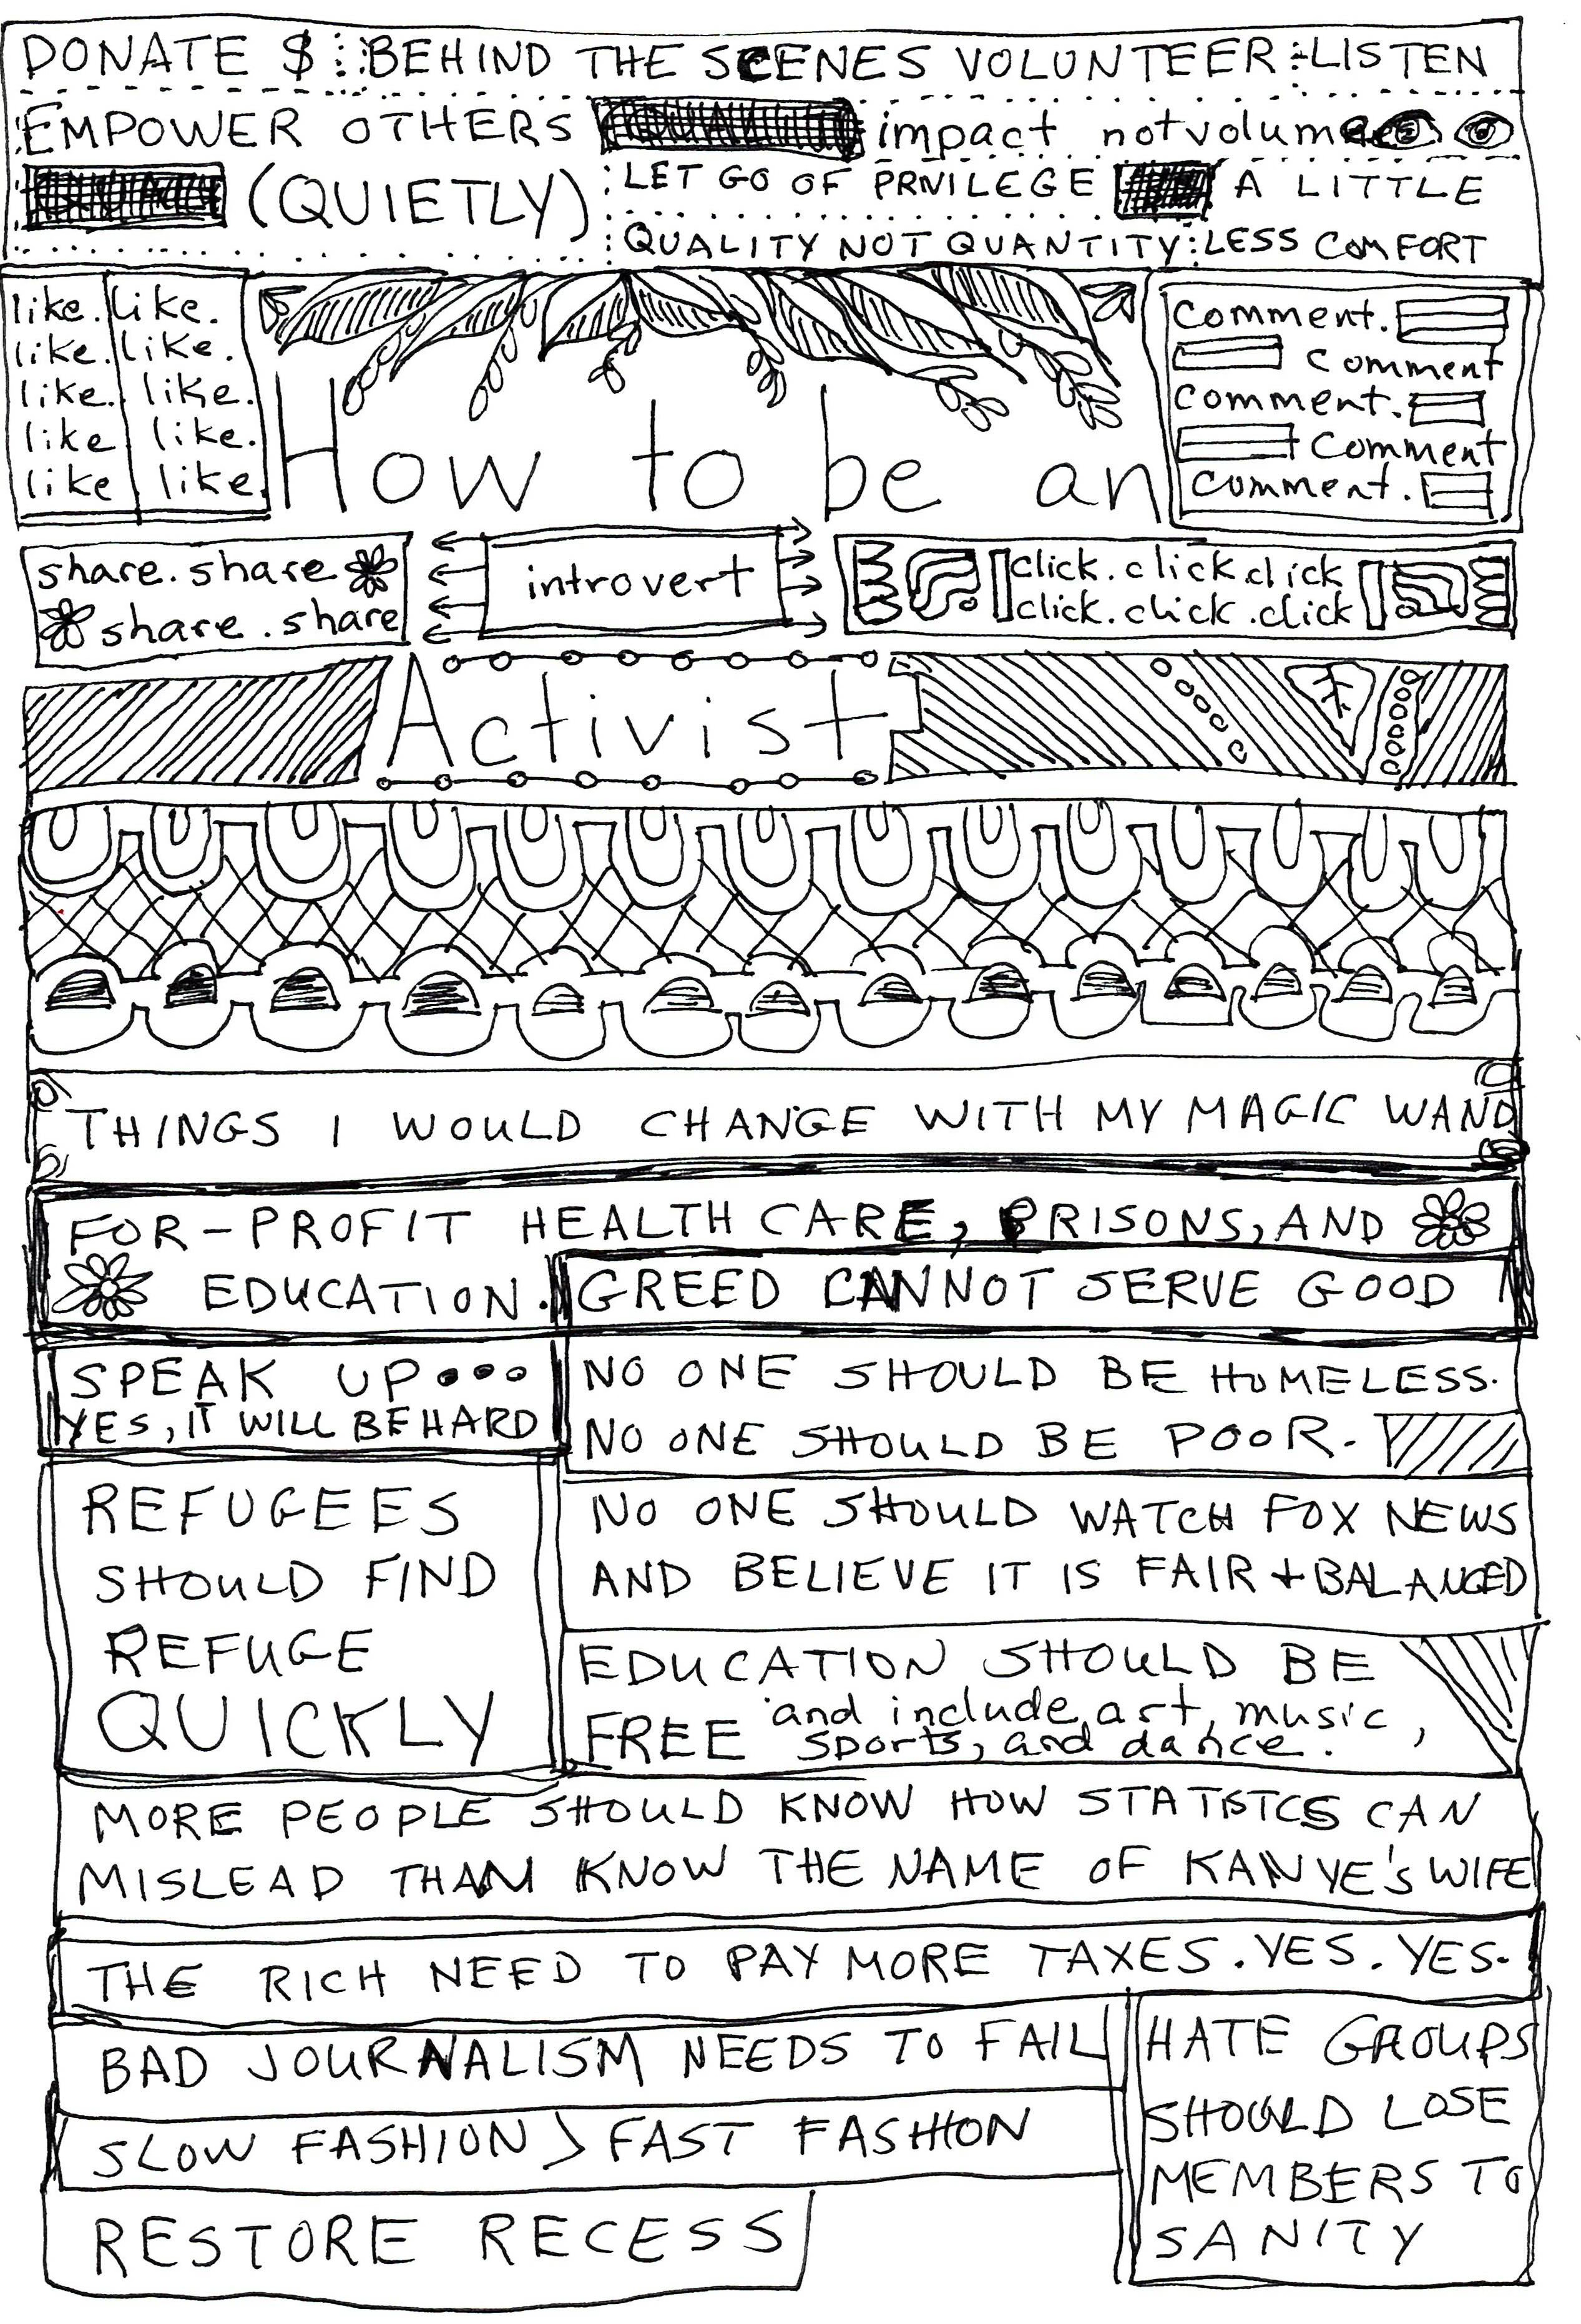 DONATE $ BEHIND THE SCENES VOLUNTEER LISTEN
EMPOWER OTHERS impact not volume
(QUIETLY)
LET GO OF PRIVILEGE A LITTLE
QUALITY NOT QUANTITY LESS COMFORT
like. like.
like. like.
like. like.
like like.
like like.
Comment.
Comment
Comment.
Comment
Comment.
How to be an
share. share
share. share
introvert
click. click click
click. click. click
Activist
THINGS I WOULD CHANGE WITH MY MAGIC WAND
FOR-PROFIT HEALTH CARE, PRISONS, AND
EDUCATION.
GREED CANNOT SERVE GOOD
SPEAK UP...
YES, IT WILL BE HARD
NO ONE SHOULD BE HOMELESS.
NO ONE SHOULD BE POOR.
REFUGEES
SHOULD FIND
REFUGE
QUICKLY
NO ONE SHOULD WATCH FOX NEWS
AND BELIEVE IT IS FAIR + BALANCED
EDUCATION SHOULD BE
FREE and include art, music,
sports, and dance.
MORE PEOPLE SHOULD KNOW HOW STATISTCS CAN
MISLEAD THAN KNOW THE NAME OF KANYE'S WIFE
THE RICH NEED TO PAY MORE TAXES. YES. YES.
BAD JOURNALISM NEEDS TO FAIL
SLOW FASHION > FAST FASHION
RESTORE RECESS
HATE GROUPS
SHOULD LOSE
MEMBERS TO
SANITY